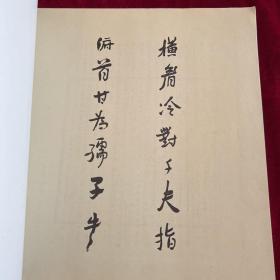 横眉冷對千夫指
俯首甘為孺子牛